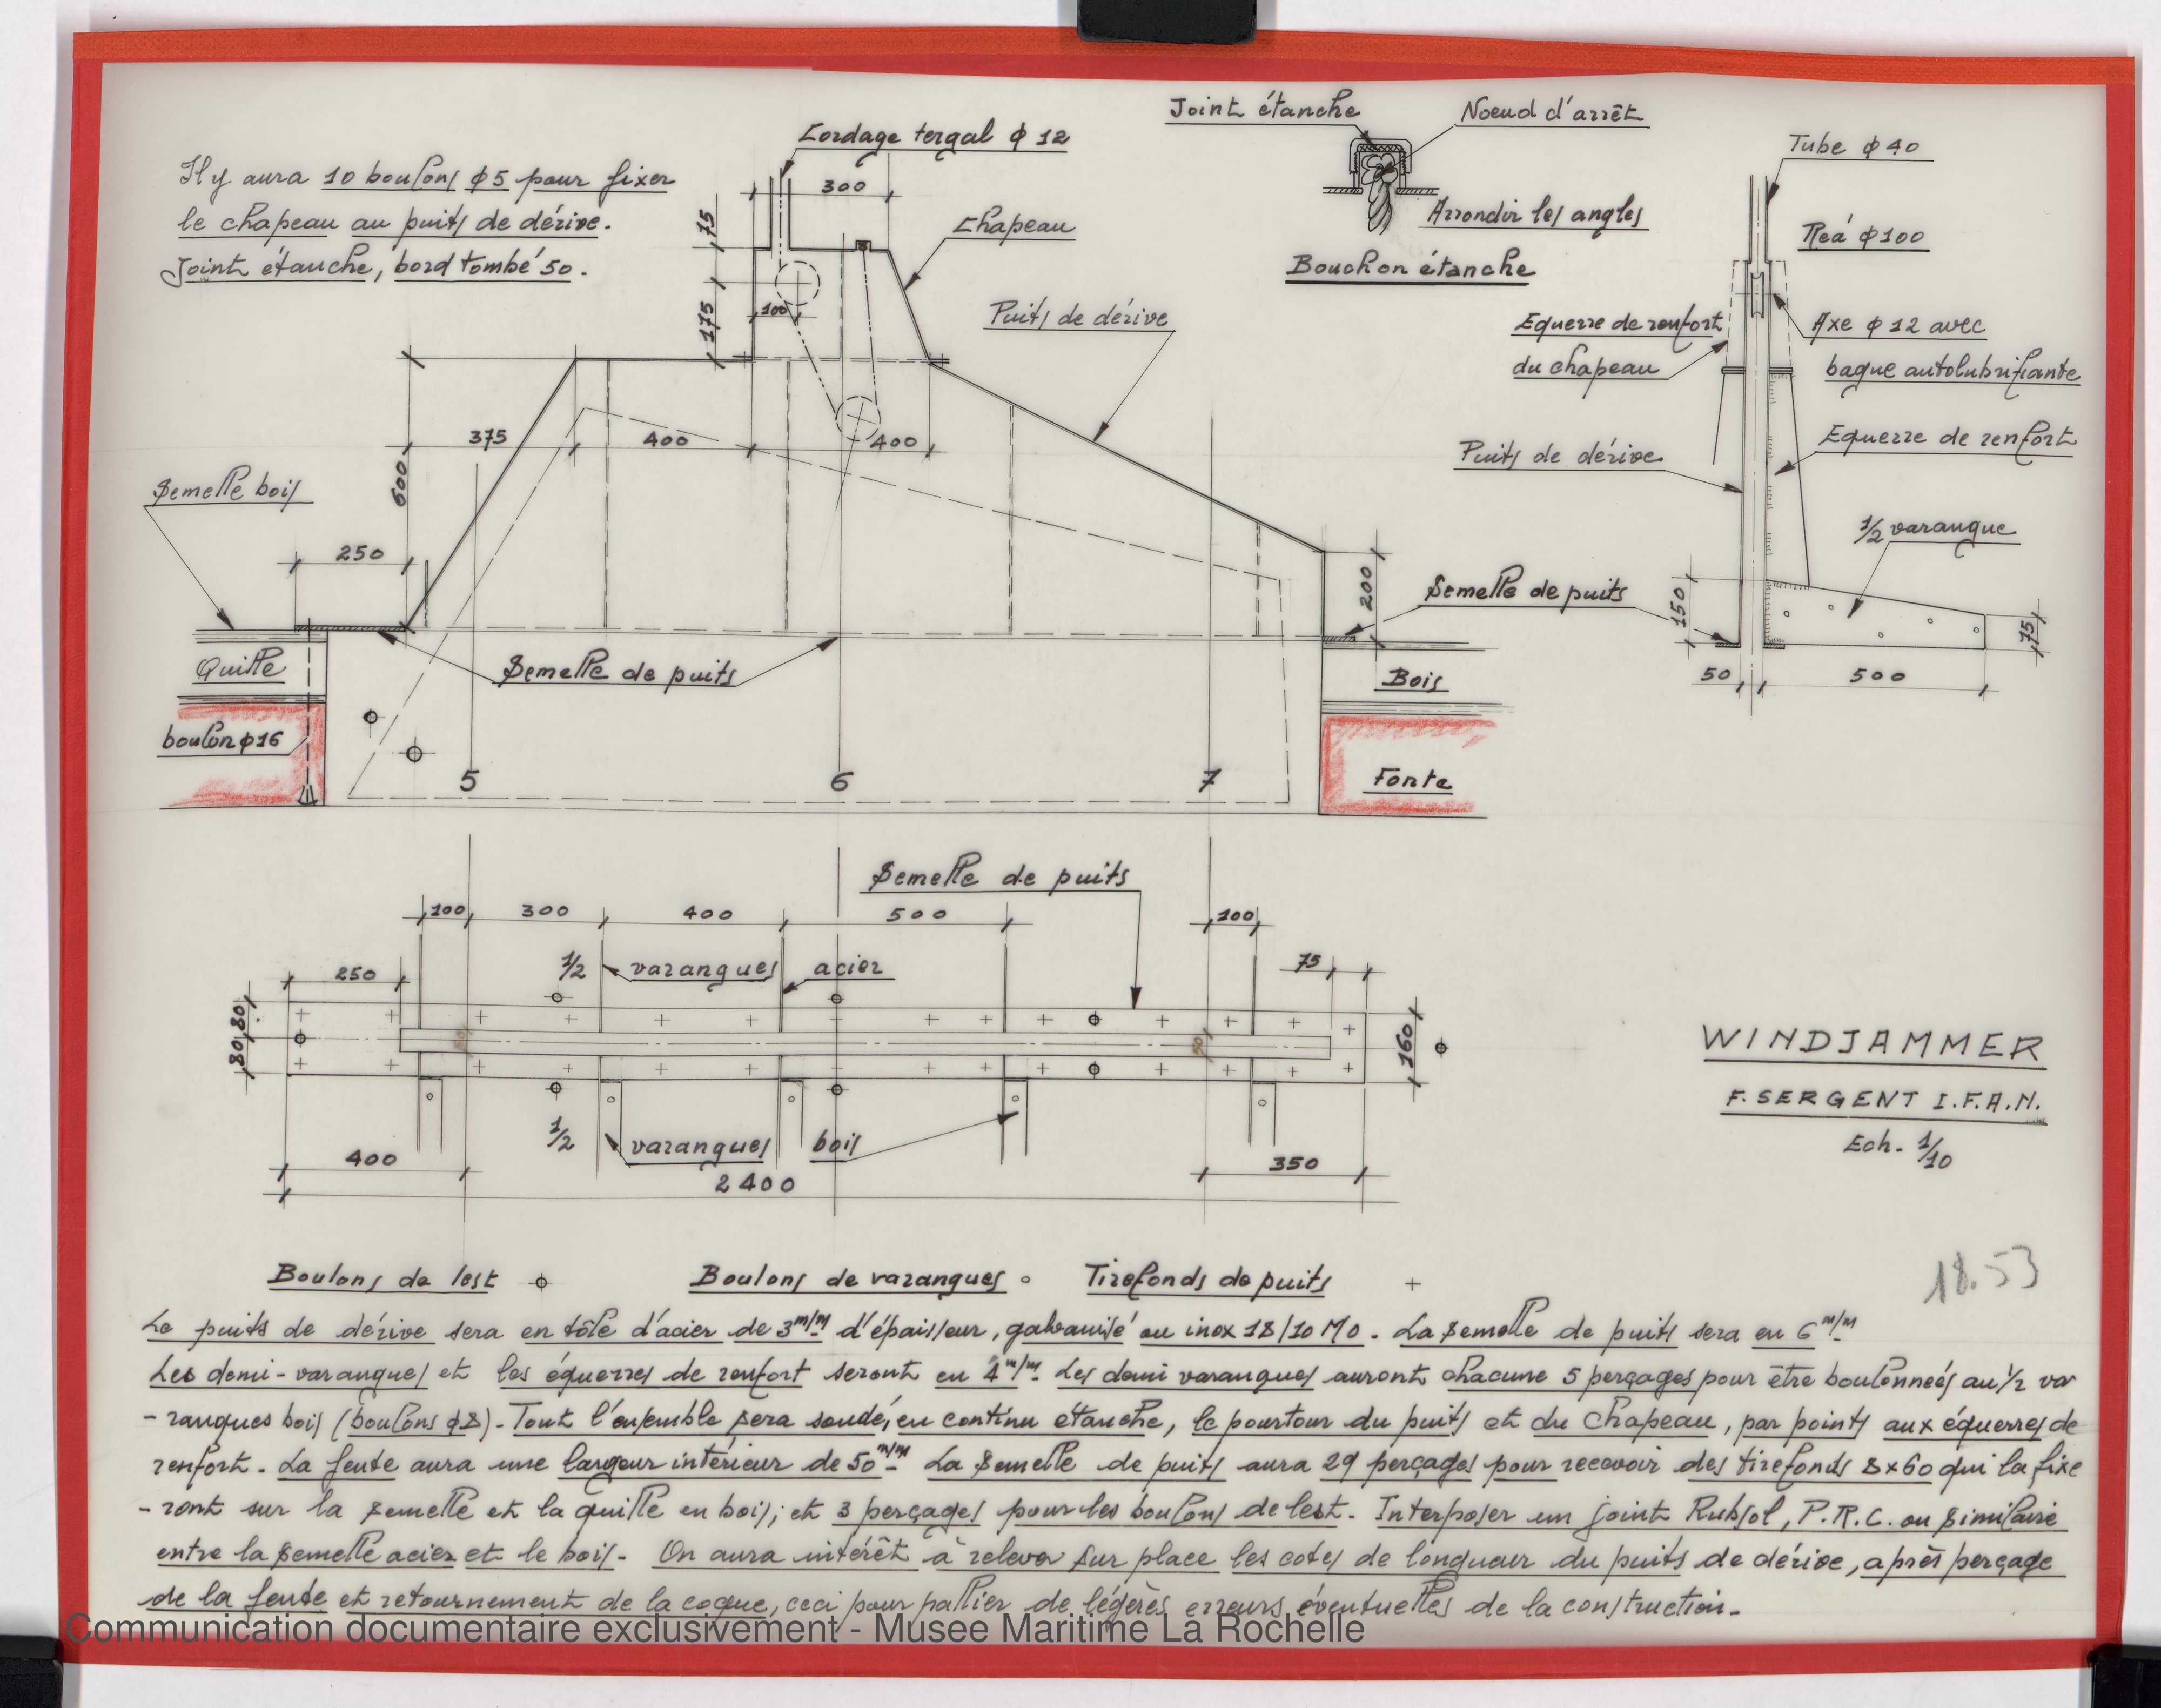 Il y aura 10 boulons φ5 pour fixer
le chapeau au puits de dérive.
Joint étanche, bord tombé 50.
Cordage tergal φ 12
300
75
175
100
Chapeau
Puits de dérive
Joint étanche
Noeud d'arrêt
Arrondir les angles
Bouchon étanche
Tube φ 40
Réa φ100
Equerre de renfort
du chapeau
Axe φ 12 avec
bague autolubrifiante
Puits de dérive
Equerre de renfort
1/2 varangue
Semelle de puits
150
75
50
500
Semelle bois
375
400
400
600
250
200
Quille
Semelle de puits
Bois
boulon φ16
5
6
7
Fonte
Semelle de puits
100
300
400
500
100
250
1/2 varangues acier
75
80
80
50
50
160
1/2 varangues bois
400
350
2400
WINDJAMMER
F. SERGENT I.F.A.N.
Ech. 1/10
18.53
Boulons de lest
Boulons de varangues
Tirefonds de puits +
Le puits de dérive sera en tôle d'acier de 3 m/m d'épaisseur, galvanisé ou inox 18/10 Mo. La semelle de puits sera en 6 m/m
Les demi-varangues et les équerres de renfort seront en 4 m/m. Les demi varangues auront chacune 5 perçages pour être boulonneés au 1/2 va
-rangues bois (boulons φ8). Tout l'ensemble sera soudé, en continu étanche, le pourtour du puits et du chapeau, par points aux équerres de
renfort. La fente aura une largeur intérieur de 50 m/m. La semelle de puits aura 29 perçages pour recevoir des tirefonds 8x60 qui la fixe
-ront sur la semelle et la quille en bois; et 3 perçages pour les boulons de lest. Interposer un joint Rubsol, P.R.C. ou similaire
entre la semelle acier et le bois. On aura intérêt à relever sur place les cotes de longueur du puits de dérive, après perçage
de la fente et retournement de la coque, ceci pour pallier de légères erreurs éventuelles de la construction.
Communication documentaire exclusivement - Musee Maritime La Rochelle